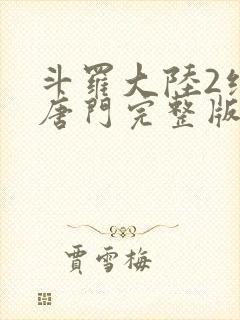 斗羅大陸2
唐門完整版
賈雪梅